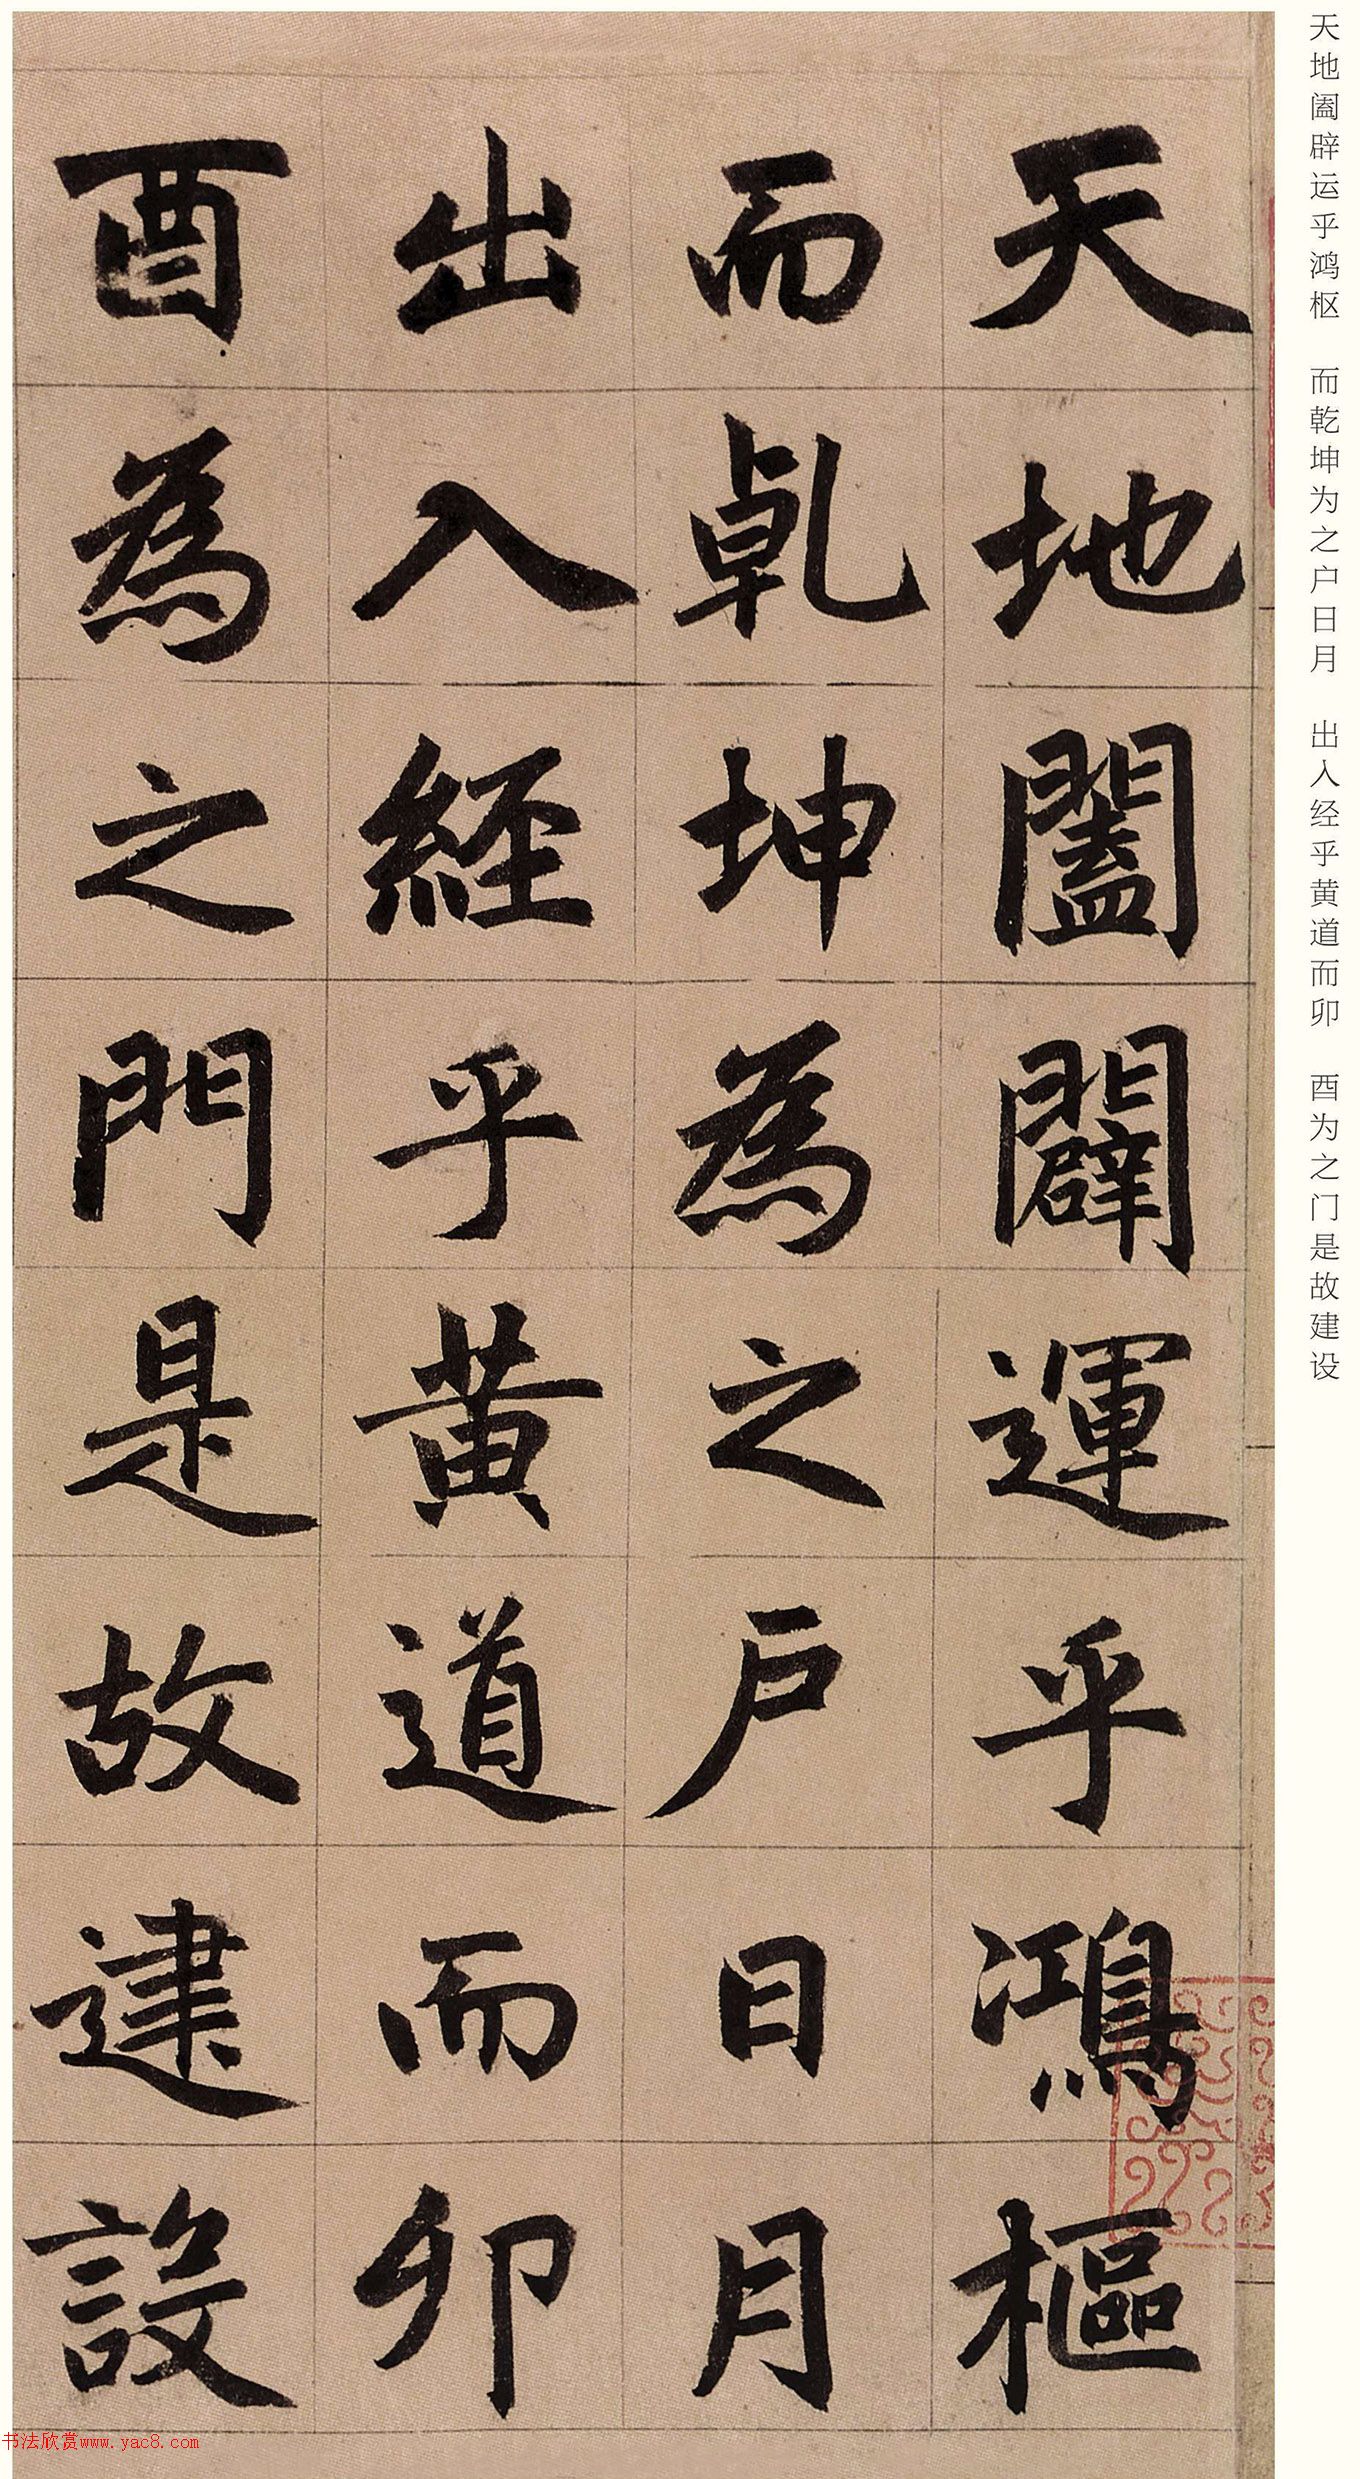 天地阖辟运乎鸿枢 而乾坤为之户日月 出入经乎黄道而卯 酉为之门是故建设
天地闔闢運乎鴻樞
而乹坤為之户日月
出入經乎黄道而卯
酉為之門是故建設
书法欣赏www.yac8.com